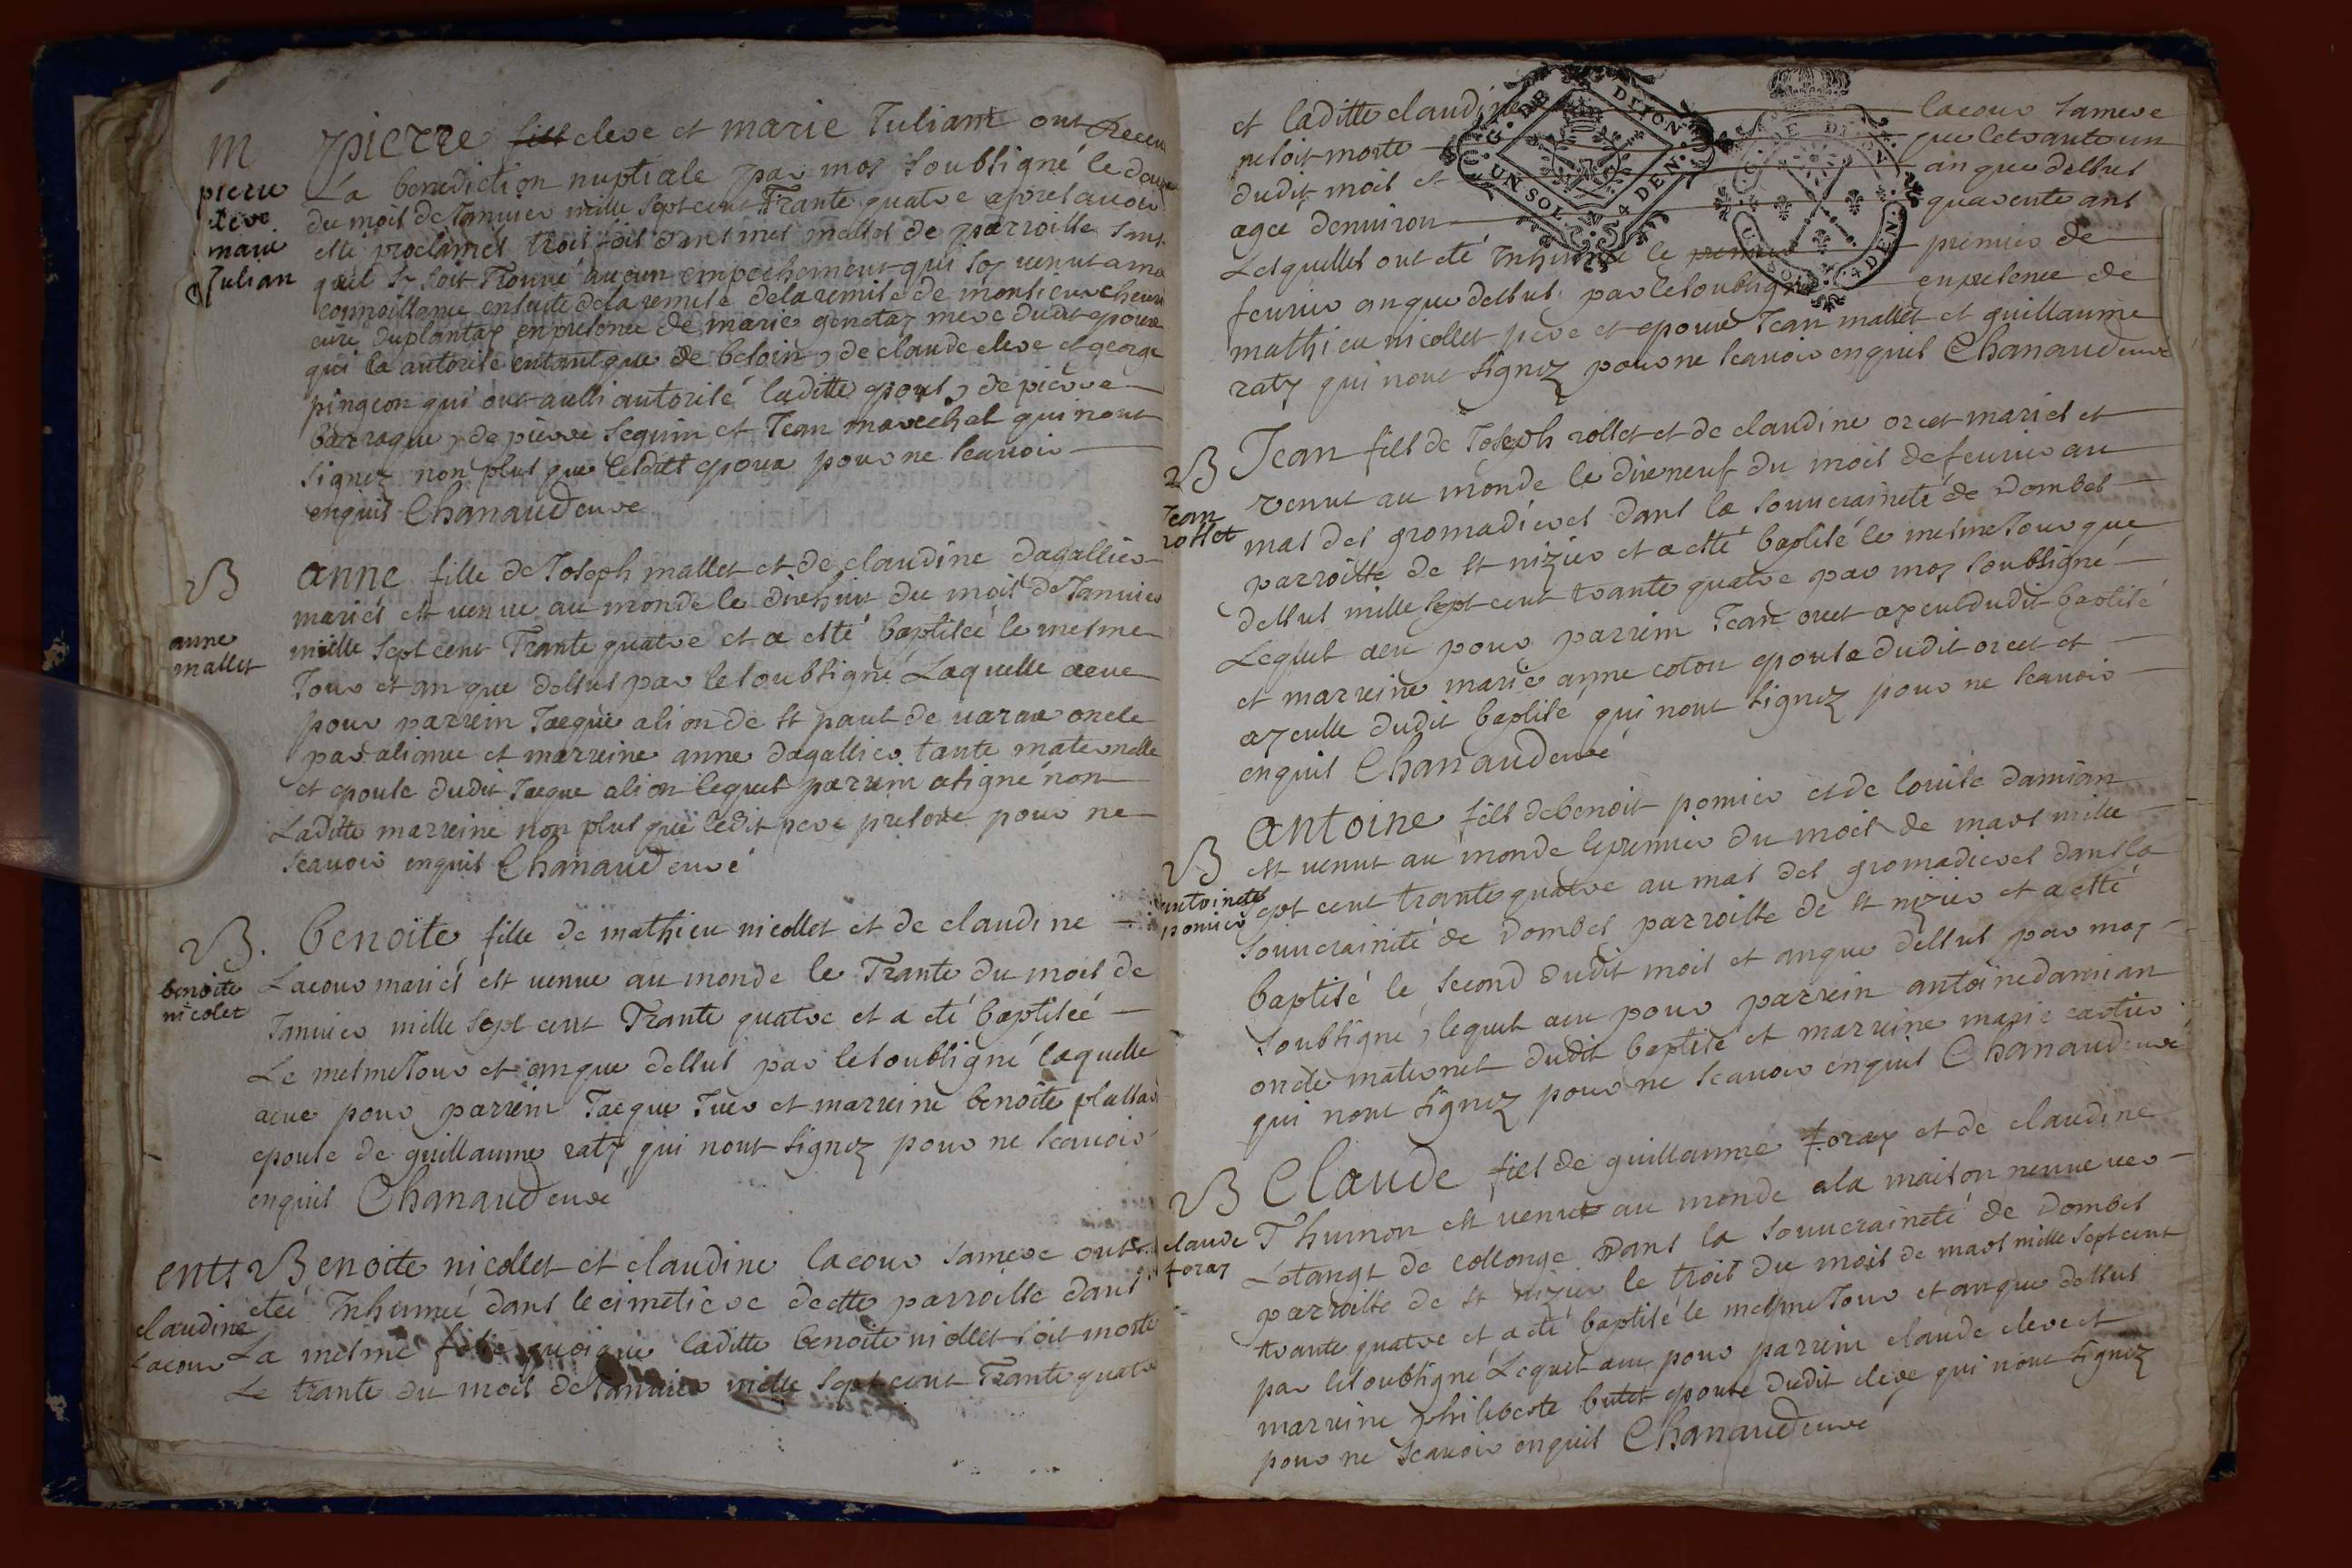 M
pierre
cleve
marie
Julian
pierre cleve et marie Juliant ont Receu
La benediction nuptiale par moy soubsigné le
du mois de Janvier mille sept cent Trante quatre apres avoir
esté proclamés trois fois dans mes messes de parroisse sans
quil sy soit Trouvé aucun empechement qui soy venut a ma
connoissance ensuite dela remise dela remise de monsieur
curé duplantay en presence de marie genetay mere dudit epoux
qui la autorisé entantque de besoin, de claude cleve et george
pingeon qui ont aussi autorisé laditte epouse, de pierre
barraque, de pierre seguin et Jean marechal qui nont
signez non plus que lesdits epoux pour ne scavoir
enquis Chanaud curé
B
anne
mallet
anne fille de Joseph mallet et de claudine dagallier
mariés est venue au monde le dixhuit du mois de Janvier
mille sept cent Trante quatre et a esté baptisée le mesme
Jour et an que dessus par le soubsigné Laquelle a eue
pour parrein Jacque alion de st paul de varax oncle
par aliance et marreine anne dagallier tante maternelle
et epouse dudit Jacque alion lequel parrein a signé non
Laditte marreine non plus que ledit pere pour ne
scavoir enquis Chanaud curé
B.
benoite
nicolet
benoite fille de mathieu nicollet et de claudine
Lacour mariés est venue au monde le Trante du mois de
Janvier mille sept cent Trante quatre et a eté baptiséé
Le mesme Jour et an que dessus par le soubsigné laquelle
a eue pour parrein Jacque et marreine benoite
epouse de guillaume raty qui nont signez pour ne scavoir
enquis Chanaud curé
ents
claudine
Lacour
Benoite nicollet et claudine lacour sa mere ont
eteé Inhumeé dans le cimetiere de cette parroisse dans
La mesme quoique laditte benoite nicollet soit morte
Le trante du mois de Janvier mille sept cent Trante quatre
et laditte claudine lacour sa mere
ne soit morte que le trante un
dudit mois et an que dessus
ageé denviron quarente ans
Lesquelles ont eté Inhumée le premier de
fevrier an que dessus par le soubsigné en presence de
mathieu nicollet pere et epoux Jean mallet et guillaume
raty qui nont signez pour ne scavoir enquis Chanaud curé
G. DE DIJON
UN SOL. 4 DEN.
B
Jean
rollet
Jean fils de Joseph rollet et de claudine orcet mariés et
venut au monde le dix neuf du mois de fevrier au
mas des gromadieres dans la souveraineté de Dombes
parroisse de st nizier et a esté baptisé le mesme Jour que
dessus mille sept cent trante quatre par moy soubsigné
Lequel a eu pour parrein Jean orcet ayeul dudit baptisé
et marreine marie anne coton epouse dudit orcet et
ayeulle dudit baptisé qui nont signez pour ne scavoir
enquis Chanaud curé
B
antoine
pomier
antoine fils de benoit pomier et de louise damian
est venut au monde le premier du mois de mars mille
sept cent trante quatre au mas des gromadieres dans la
souveraineté de Dombes parroisse de st nizier et a esté
baptisé le second dudit mois et an que dessus par moy
soubsigné, lequel a eu pour parrein antoine damian
oncle maternel dudit baptisé et marreine marie cartier
qui nont signez pour ne scavoir enquis Chanaud curé
B
claude
foray
Claude fils de guillaume foray et de claudine
Thumon est venut au monde a la maison neuve vers
Letangt de collonge dans la souveraineté de Dombes
parroisse de st nizier le trois du mois de mars mille sept cent
trante quatre et a eté baptisé le mesme Jour et an que dessus
par le soubsigné Lequel a eu pour parrein claude cleve et
marreine philiberte butet epouse dudit cleve qui nont signez
pour ne scavoir enquis Chanaud curé